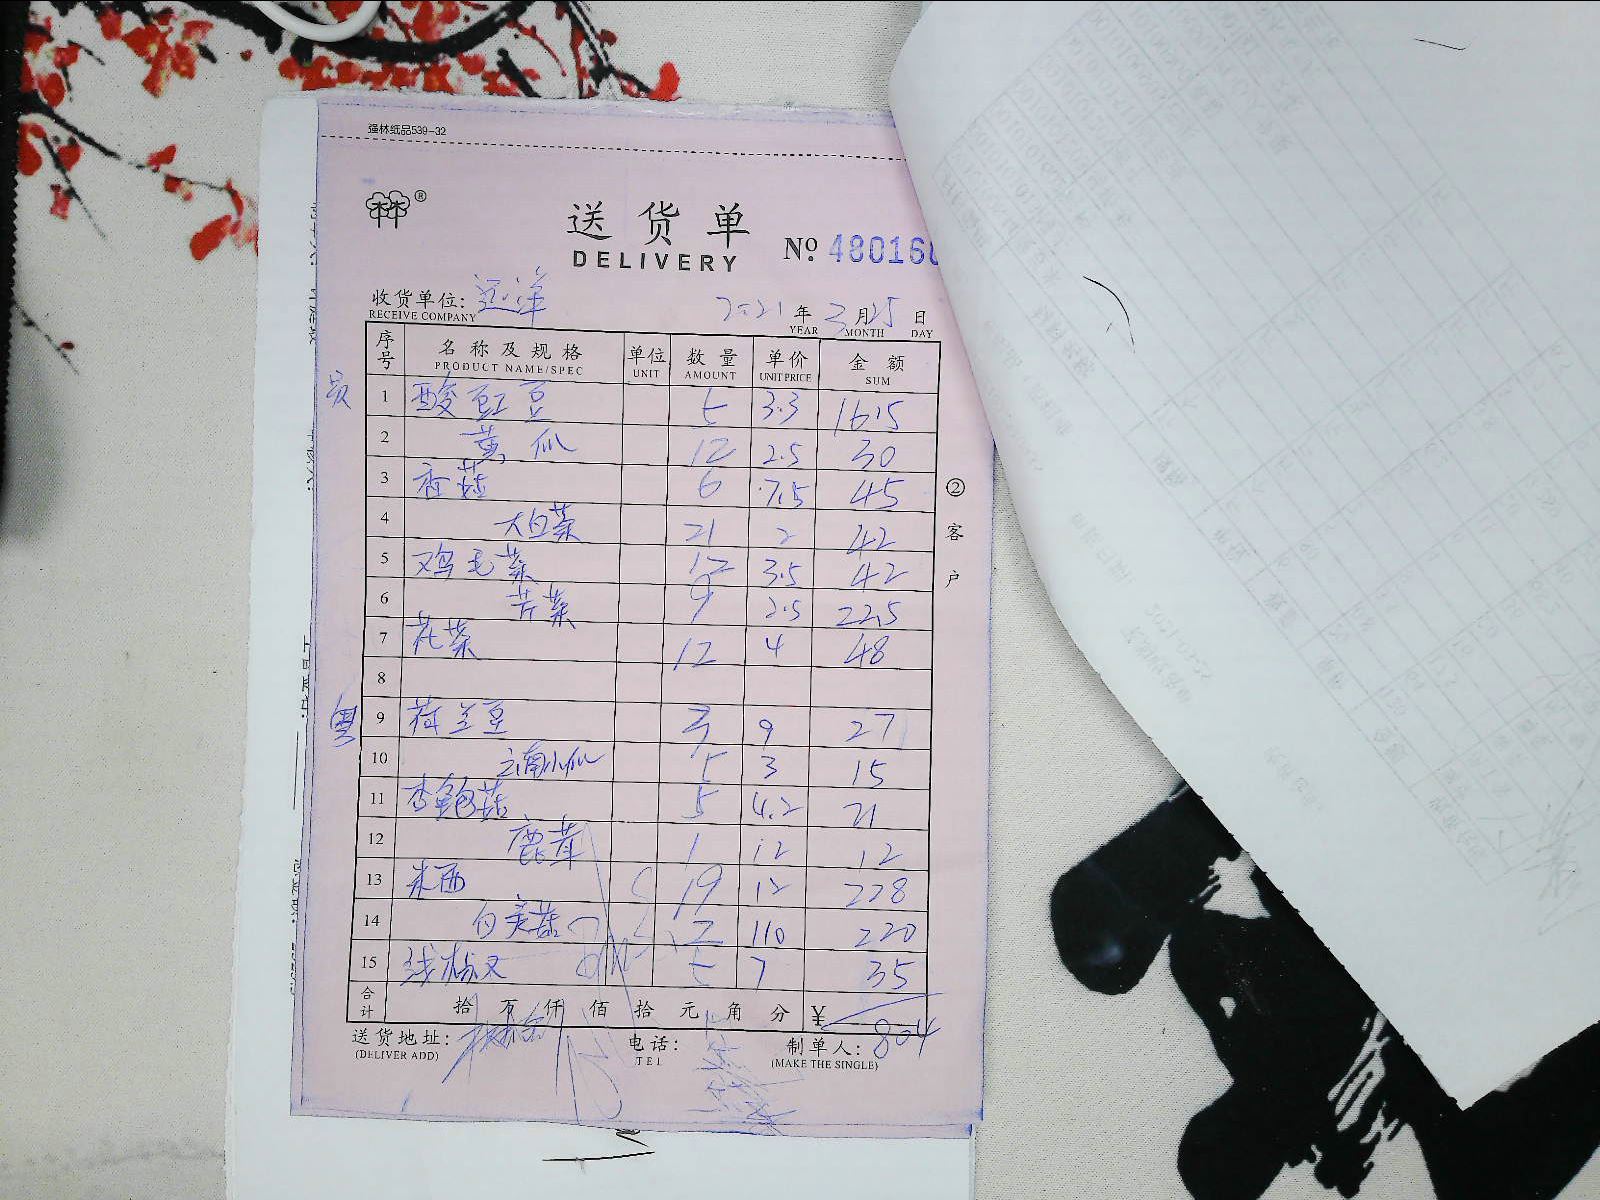 强林纸品539-32
林 ®
送货单
DELIVERY
Nº 480168
收货单位: 远洋 2021 年 3 月 25 日
RECEIVE COMPANY YEAR MONTH DAY
序号 名称及规格 单位 数量 单价 金额
PRODUCT NAME/SPEC UNIT AMOUNT UNIT PRICE SUM
员
1 酸豇豆 5 3.3 16.5
2 黄瓜 12 2.5 30
3 香菇 6 7.5 45
4 大白菜 21 2 42
5 鸡毛菜 12 3.5 42
6 芹菜 9 2.5 22.5
7 花菜 12 4 48
8
粤
9 荷兰豆 3 9 27
10 云南小瓜 5 3 15
11 杏鲍菇 5 4.2 21
12 鹿茸 1 12 12
13 米西 19 12 228
14 白美菇 2 110 220
15 线椒 5 7 35
合计 拾 万 仟 佰 拾 元 角 分 ¥ 804
送货地址: 电话: 制单人:
(DELIVER ADD) TEL (MAKE THE SINGLE)
② 客户